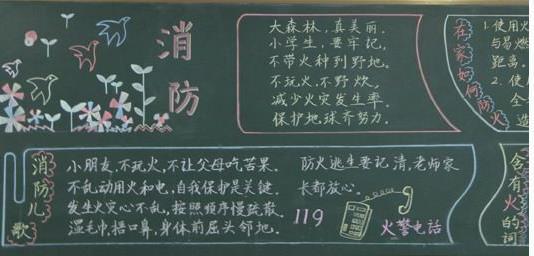 消防
大森林，真美丽，
小学生，要牢记，
不带火种到野地。
不玩火，不野炊，
减少火灾发生率，
保护地球齐努力。
在家如何防火
1.使用火
与易燃
距离。
2.使
全
造
消防儿歌
小朋友，不玩火，不让父母吃苦果。
不乱动用火和电，自我保护是关键。
发生火灾心不乱，按照顺序慢疏散。
湿毛巾，捂口鼻，身体前屈头邻地。
防火逃生要记清，老师家
长都放心。
119
火警电话
含有火的词